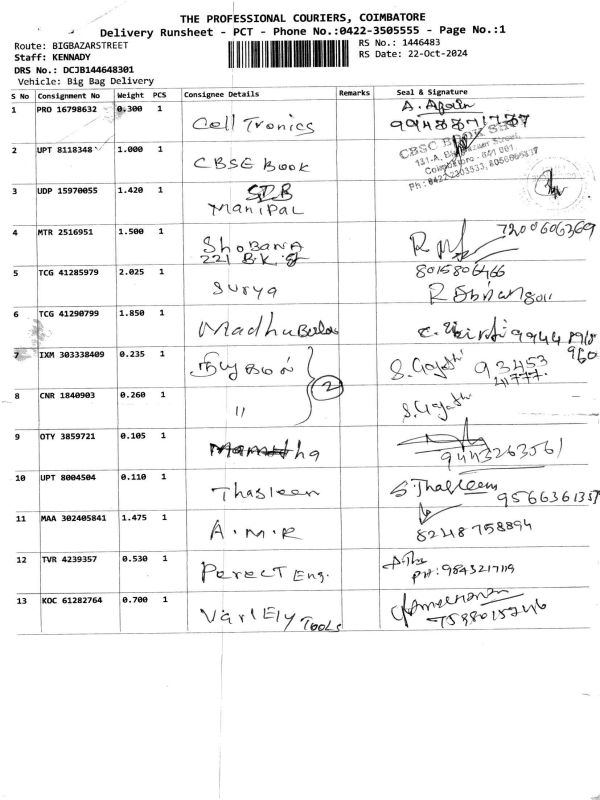 THE PROFESSIONAL COURIERS, COIMBATORE
Delivery Runsheet - PCT - Phone No.:0422-3505555 - Page No.:1
Route: BIGBAZARSTREET
RS No.: 1446483
Staff: KENNADY
RS Date: 22-Oct-2024
DRS No.: DCJB144648301
Vehicle: Big Bag Delivery
S No Consignment No Weight PCS Consignee Details Remarks Seal & Signature
1 PRO 16798632 0.300 1 Cell Tronics
2 UPT 8118348 1.000 1 CBSE Book
3 UDP 15970055 1.420 1 SDB
Manipal
4 MTR 2516951 1.500 1 Shobana 7200606369
221 BK St
5 TCG 41285979 2.025 1 Surya 8015806466
6 TCG 41290799 1.850 1 Madhu
7 IXM 303338409 0.235 1 S. Gayathri 93453
41777
2
8 CNR 1840903 0.260 1 11 S. Gayathri
9 OTY 3859721 0.105 1 9443263561
10 UPT 8004504 0.110 1 Thasleen S. Thasleem
9566361357
11 MAA 302405841 1.475 1 A.M.R 8248758894
12 TVR 4239357 0.530 1 Perect Eng. PH: 9843217119
13 KOC 61282764 0.700 1 VariEly Tools
7598015246